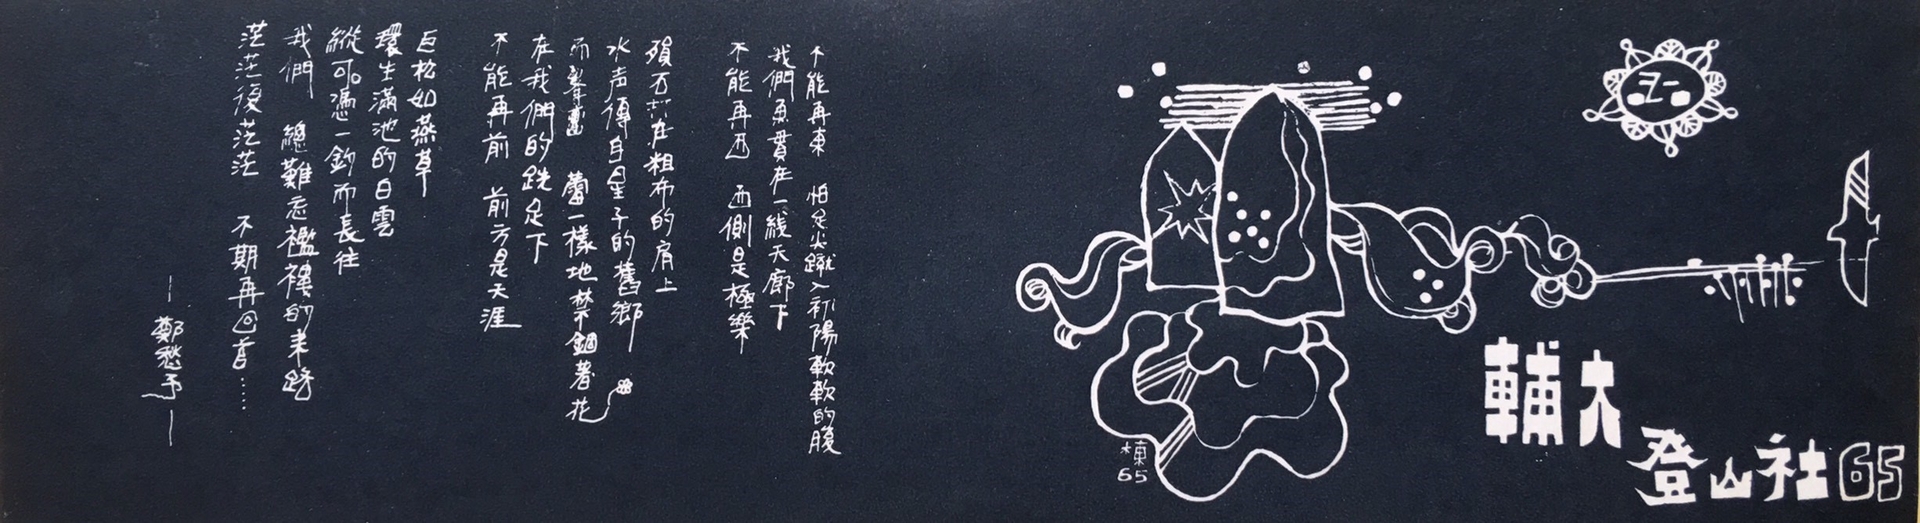 輔大
登山社65
棟
65
不能再東 怕足尖蹴入初陽軟軟的腹
我們魚貫在一線天廊下
不能再西 西側是極樂
隕石打在粗布的肩上
水声傳自星子的舊鄉
而峯巒 蕾一樣地禁錮著花
在我們的跣足下
不能再前 前方是天涯
巨松如燕草
環生滿池的白雲
縱可憑一釣而長往
我們 總難忘襤褸的来路
茫茫復茫茫 不期再回首……
—鄭愁予—